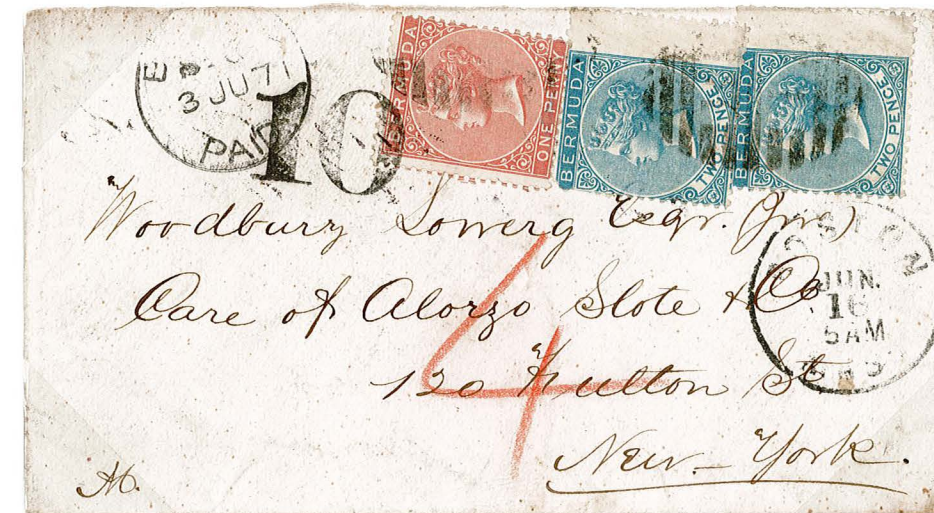 3 JU 71
PAID
10
BERMUDA
ONE PENNY
BERMUDA
TWO PENCE
BERMUDA
TWO PENCE
Woodbury Lowery Esqr. (Jnr)
Care of Alonzo Slote & Co
120 Fulton St.
New-York.
4
BOSTON
JUN.
16
5AM